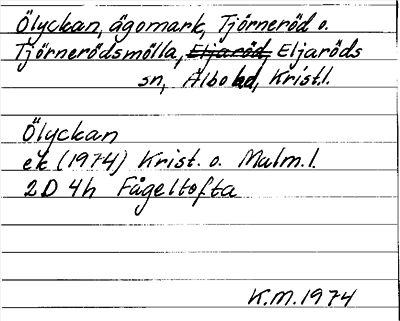 Ölyckan, ägomark, Tjörneröd o.
Tjörnerödsmölla, Eljaröd, Eljaröds
sn, Albo hd, Krist.l.
Ölyckan
ek (1974) Krist. o. Malm.l.
2D 4h Fågeltofta
K.M. 1974